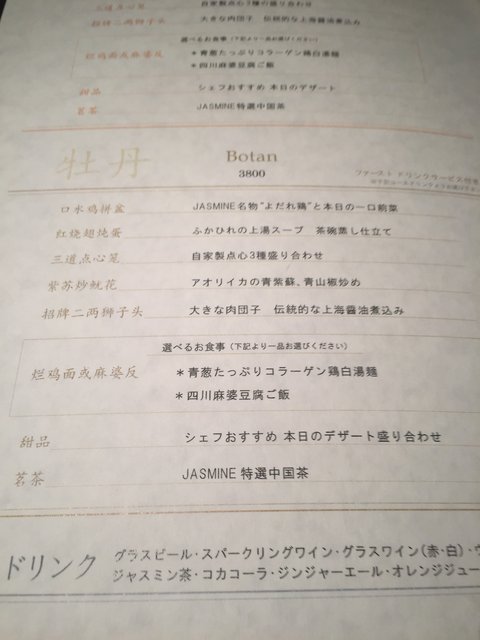 三道点心笼 自家製点心3種の盛り合わせ
招牌二两狮子头 大きな肉団子 伝統的な上海醤油煮込み
選べるお食事（下記より一品お選びください）
烂鸡面或麻婆反 ＊青葱たっぷりコラーゲン鶏白湯麺
＊四川麻婆豆腐ご飯
甜品 シェフおすすめ 本日のデザート
茗茶 JASMINE特選中国茶
牡丹 Botan
3800
ファーストドリンクサービス付き
口水鸡拼盆 JASMINE名物“よだれ鶏”と本日の一口前菜
红烧翅炖蛋 ふかひれの上湯スープ 茶碗蒸し仕立て
三道点心笼 自家製点心3種盛り合わせ
紫苏炒鱿花 アオリイカの青紫蘇、青山椒炒め
招牌二两狮子头 大きな肉団子 伝統的な上海醤油煮込み
選べるお食事（下記より一品お選びください）
烂鸡面或麻婆反 ＊青葱たっぷりコラーゲン鶏白湯麺
＊四川麻婆豆腐ご飯
甜品 シェフおすすめ 本日のデザート盛り合わせ
茗茶 JASMINE 特選中国茶
ドリンク グラスビール・スパークリングワイン・グラスワイン（赤・白）・ウ
ジャスミン茶・コカコーラ・ジンジャーエール・オレンジジュー